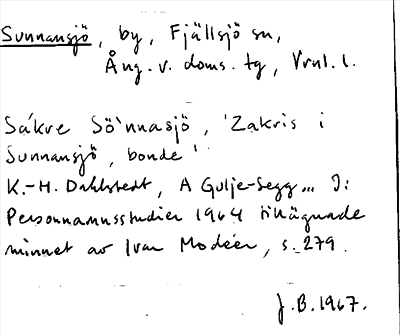 Sunnansjö, by, Fjällsjö sn,
Ång. v. doms. tg, Vrnl. l.
Sákre Sö`nnasjö, 'Zakris i
Sunnansjö, bonde'
K.-H. Dahlstedt, A Gulje-Segg... I:
Personnamnsstudier 1964 tillägnade
minnet av Ivar Modéer, s. 279.
J.B. 1967.